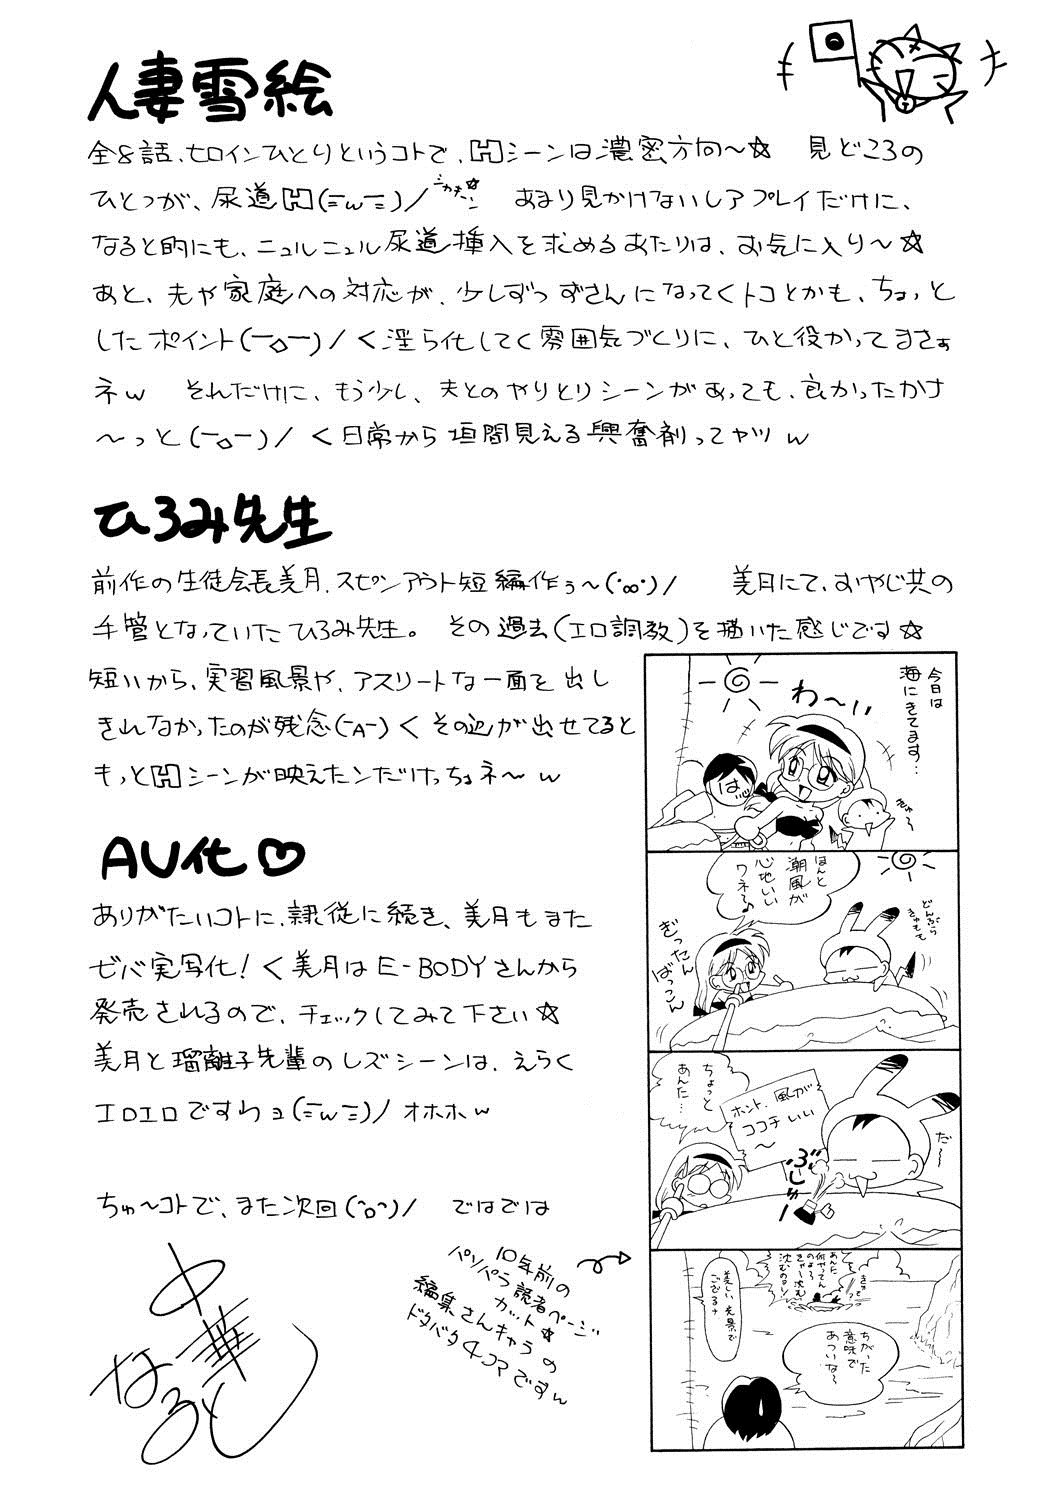 人妻雪絵
全8話、ヒロインひとりというコトで、Hシーンは濃密方向～☆　見どころの
ひとつが、尿道H(ΞwΞ)/ジカキーン☆　あまり見かけないレアプレイだけに、
なると的にも、ニュルニュル尿道挿入を求めるあたりは、お気に入り～☆
あと、夫や家庭への対応が、少しずつずさんになってくトコとかも、ちょっと
したポイント(￣o￣)/く淫ら化してく雰囲気づくりに、ひと役かってまさぁ
ネw　それだけに、もう少し、夫とのやりとりシーンがあっても、良かったかな
～っと(￣o￣)/く日常から垣間見える興奮剤ってヤツw
ひろみ先生
前作の生徒会長美月、スピンアウト短編作ぅ～(・∞・)/　美月にて、おやじ共の
手管となっていたひろみ先生。その過去(エロ調教)を描いた感じです☆
短いから、実習風景や、アスリートな一面を出し
きれなかったのが残念(￣A￣)くその辺が出せてると
もっとHシーンが映えたンだけっちょネ～w
AV化♡
ありがたいコトに、隷従に続き、美月もまた
ゼバ実写化！く美月はE-BODYさんから
発売されるので、チェックしてみて下さい☆
美月と瑠離子先輩のレズシーンは、えらく
エロエロですわョ(ΞwΞ)/オホホw
ちゅ～コトで、また次回(^o^)/　ではでは
中華
なると
10年前の
パソパラ読者ページ
カット☆
編集さんキャラの
ドタバタ4コマですw
今日は
海にきてます…
わ～い
は
きゅ～
ほんと
潮風が
心地いい
ワネ～♪
どんぶら
ぎったん
ばっこん
ちょっと
あんた…
ホント、風が
ココチいい
～
だ～
ぶしゅー
あんた
何やってん
のよ～
きゃー沈む
沈むのヨン
美しい光景で
ござるナ
ちがった
意味で
あついな～